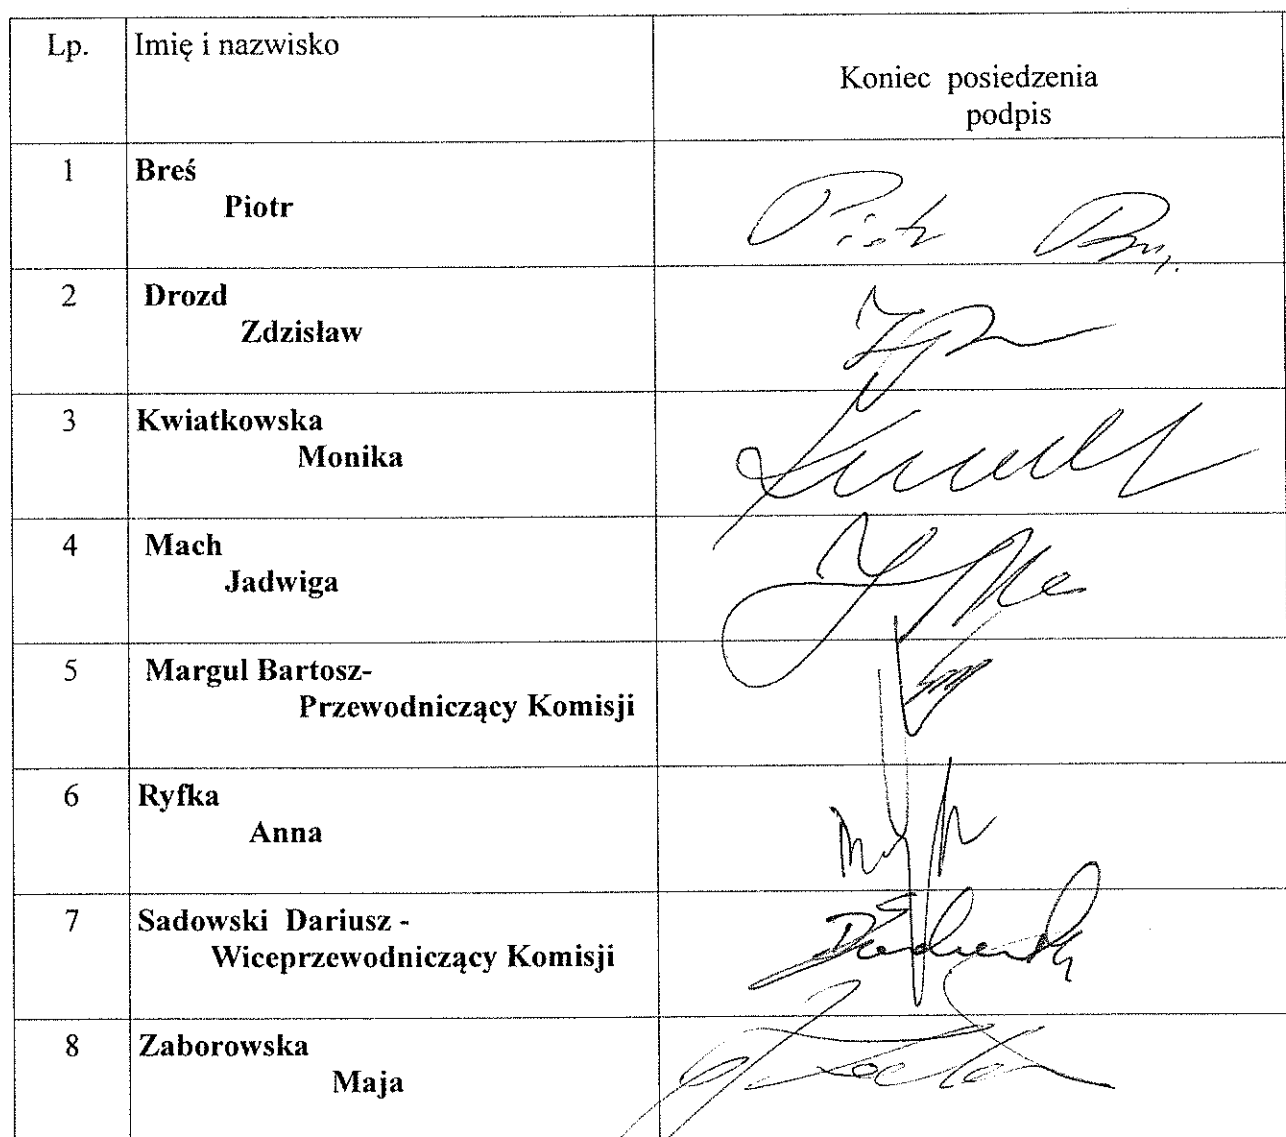 Lp.
Imię i nazwisko
Koniec posiedzenia
podpis
1
Breś
Piotr
Piotr
2
Drozd
Zdzisław
3
Kwiatkowska
Monika
4
Mach
Jadwiga
5
Margul Bartosz-
Przewodniczący Komisji
6
Ryfka
Anna
7
Sadowski Dariusz -
Wiceprzewodniczący Komisji
8
Zaborowska
Maja